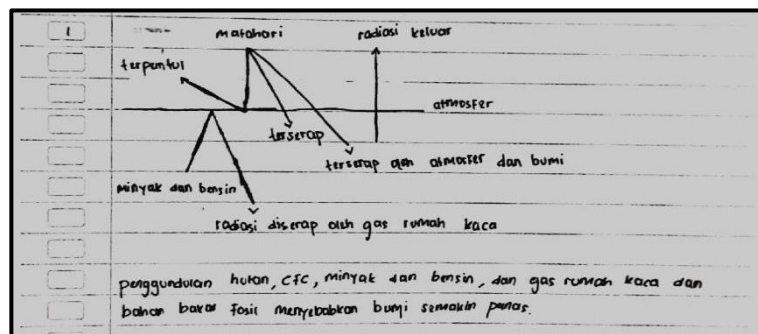 1
matahari
radiasi keluar
terpantul
atmosfer
terserap
terserap oleh atmosfer dan bumi
minyak dan bensin
radiasi diserap oleh gas rumah kaca
penggundulan hutan, CFC, minyak dan bensin, dan gas rumah kaca dan
bahan bakar fosil menyebabkan bumi semakin panas.